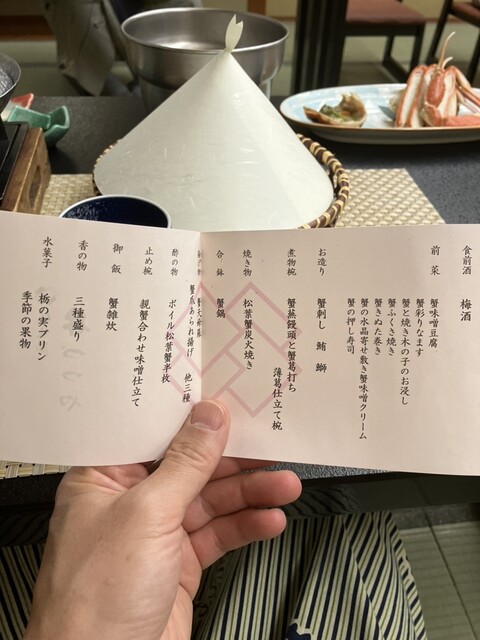 食前酒 梅酒
前菜 蟹味噌豆腐
蟹彩りなます
蟹と焼き木の子のお浸し
蟹ふくさ焼き
蟹きぬた巻き
蟹の水晶寄せ敷き蟹味噌クリーム
蟹の押し寿司
お造り 蟹刺し 鮪 鰤
煮物椀 蟹蒸饅頭と蟹葛打ち
薄葛仕立て椀
焼き物 松葉蟹炭火焼き
合鉢 蟹鍋
蟹爪あられ揚げ 他三種
酢の物 ボイル松葉蟹半枚
止め椀 親蟹合わせ味噌仕立て
御飯 蟹雑炊
香の物 三種盛り
水菓子 栃の実プリン
季節の果物